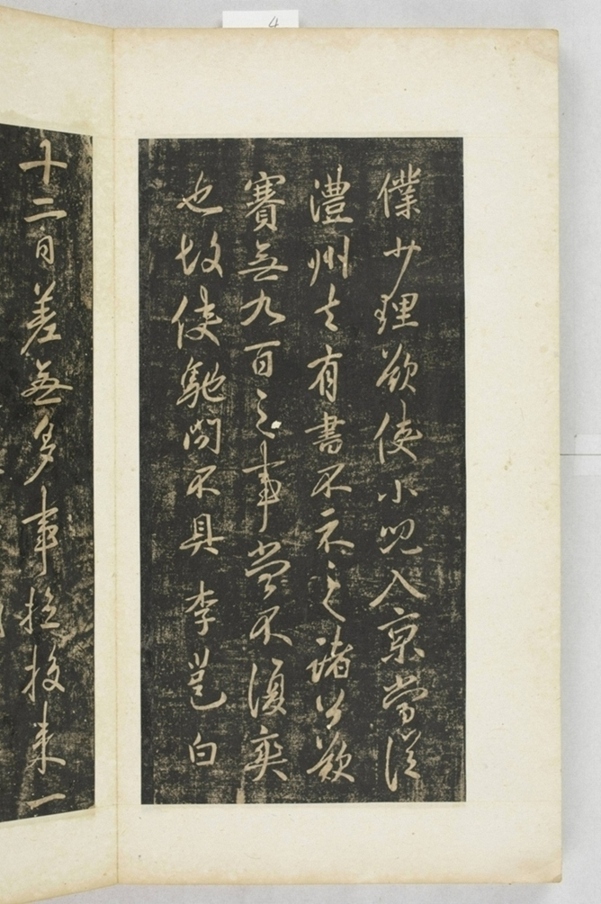 僕少理欲使小児入京當從
澧州去有書不示之諸公欲
賽無九百之事當不復爽
也故使馳問不具 李邕白
十二日差無多事 投來一
4